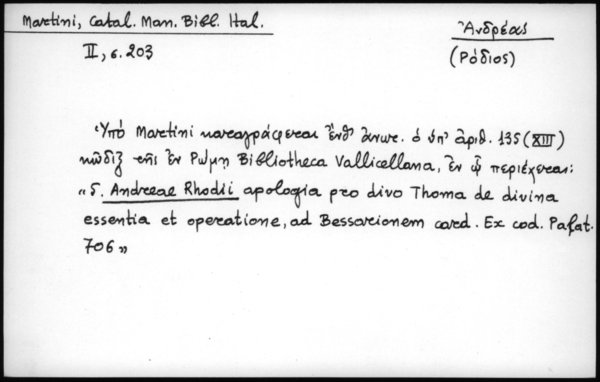 Martini, Catal. Man. Bibl. Ital.
II, σ. 203
Ἀνδρέας
(Ρόδιος)
Ὑπό Martini καταγράφεται ἔνθ' ἄνωτ. ὁ ὑπ' ἀριθ. 135 (XIII)
κῶδιξ τῆς ἐν Ρώμῃ Bibliotheca Vallicellana, ἐν ᾧ περιέχεται:
«5. Andreae Rhodii apologia pro divo Thoma de divina
essentia et operatione, ad Bessarionem card. Ex cod. Palat.
706»